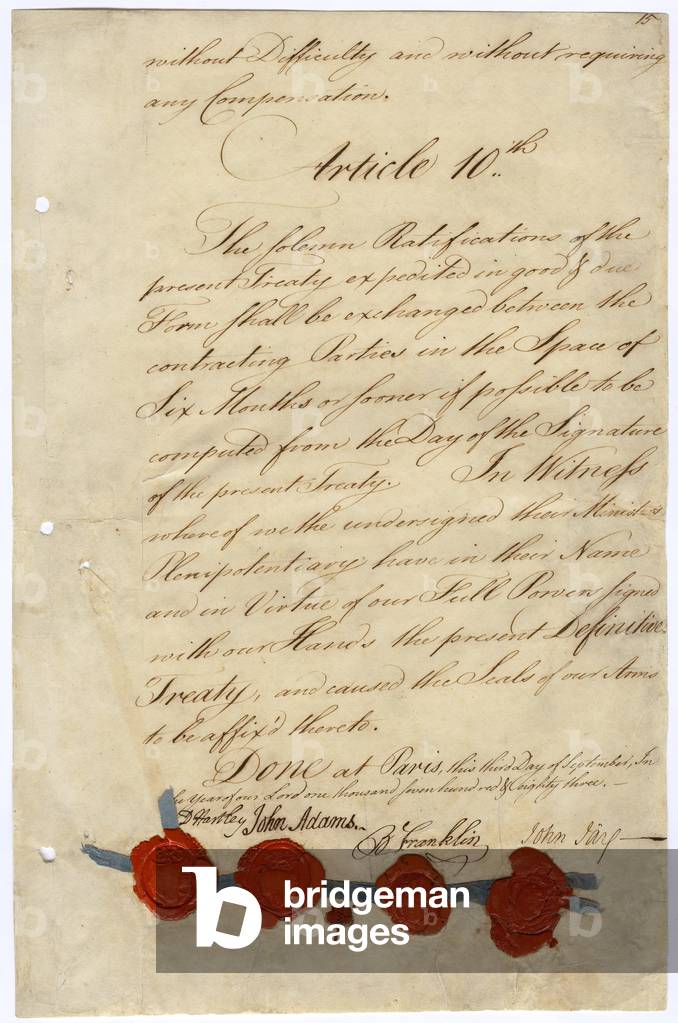 15
without Difficulty and without requiring
any Compensation.
Article 10.th
The solemn Ratifications of the
present Treaty expedited in good & due
Form shall be exchanged between the
contracting Parties in the Space of
Six Months or sooner if possible to be
computed from the Day of the Signature
of the present Treaty. In Witness
whereof we the undersigned their Ministers
Plenipotentiary have in their Name
and in Virtue of our Full Powers signed
with our Hands the present Definitive
Treaty, and caused the Seals of our Arms
to be affix'd thereto.
Done at Paris, this third Day of September, In
the Year of our Lord one thousand seven hundred & eighty three.—
D Hartley John Adams.. B Franklin John Jay—
bridgeman
images